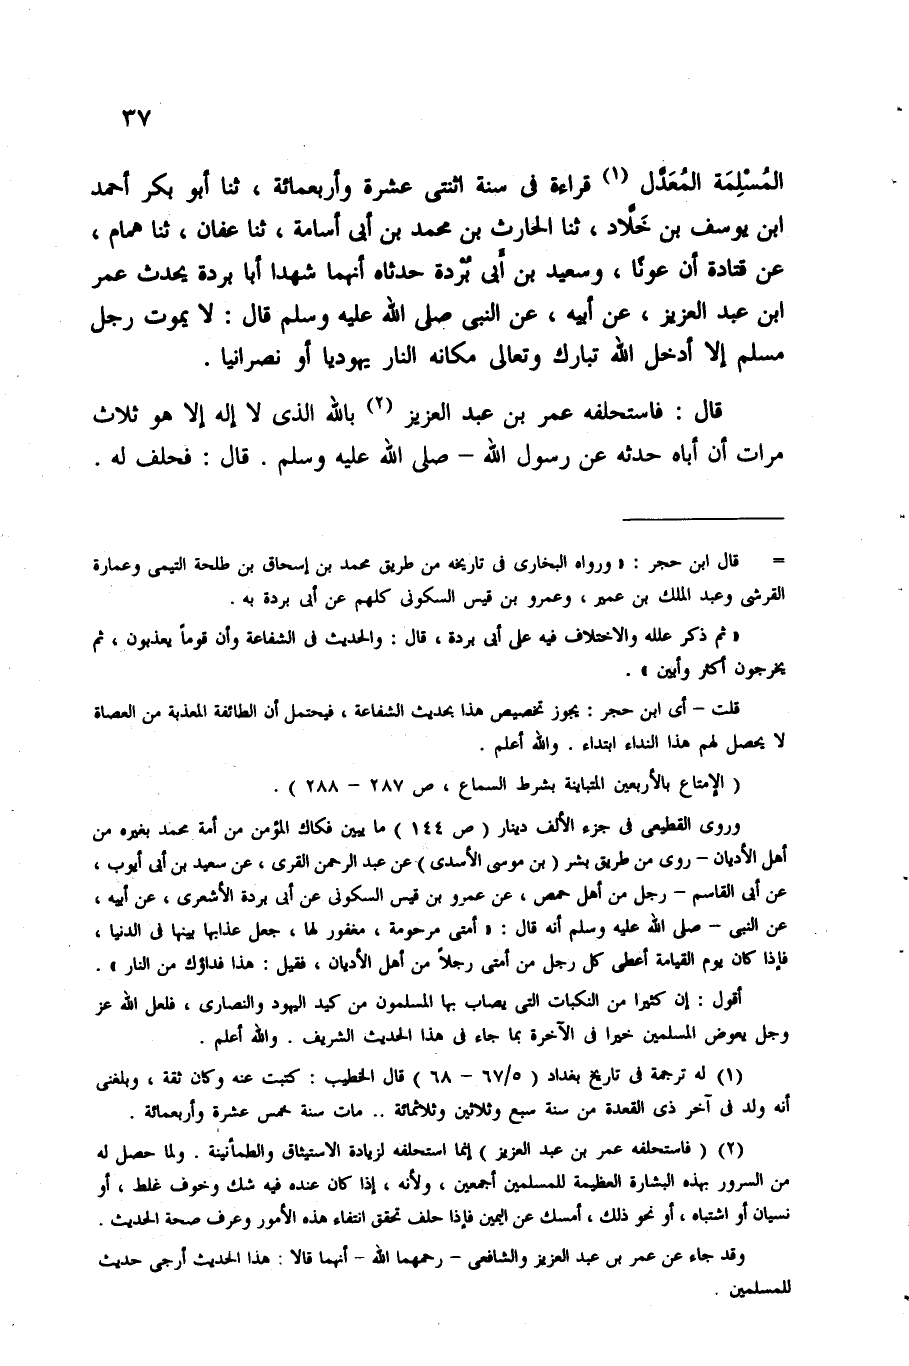 ٣٧
المُسْلِمَة المُعَدَّل (١) قراءة فى سنة اثنتى عشرة وأربعمائة ، ثنا أبو بكر أحمد
ابن يوسف بن خَلَّاد ، ثنا الحارث بن محمد بن أبى أسامة ، ثنا عفان ، ثنا همام ،
عن قتادة أن عونًا ، وسعيد بن أبى بُرْدة حدثاه أنهما شهدا أبا بردة يحدث عمر
ابن عبد العزيز ، عن أبيه ، عن النبى صلى الله عليه وسلم قال : لا يموت رجل
مسلم إلا أدخل الله تبارك وتعالى مكانه النار يهوديا أو نصرانيا .
قال : فاستحلفه عمر بن عبد العزيز (٢) بالله الذى لا إله إلا هو ثلاث
مرات أن أباه حدثه عن رسول الله – صلى الله عليه وسلم . قال : فحلف له .
= قال ابن حجر : « ورواه البخارى فى تاريخه من طريق محمد بن إسحاق بن طلحة التيمى وعمارة
القرشى وعبد الملك بن عمير ، وعمرو بن قيس السكونى كلهم عن أبى بردة به .
« ثم ذكر علله والاختلاف فيه على أبى بردة ، قال : والحديث فى الشفاعة وأن قوماً يعذبون ، ثم
يخرجون أكثر وأبين » .
قلت – أى ابن حجر : يجوز تخصيص هذا بحديث الشفاعة ، فيحتمل أن الطائفة المعذبة من العصاة
لا يحصل لهم هذا النداء ابتداء . والله أعلم .
( الإمتاع بالأربعين المتباينة بشرط السماع ، ص ٢٨٧ – ٢٨٨ ) .
وروى القطيعى فى جزء الألف دينار ( ص ١٤٤ ) ما يبين فكاك المؤمن من أمة محمد بغيره من
أهل الأديان – روى من طريق بشر ( بن موسى الأسدى ) عن عبد الرحمن القرى ، عن سعيد بن أبى أيوب ،
عن أبى القاسم – رجل من أهل حمص ، عن عمرو بن قيس السكونى عن أبى بردة الأشعرى ، عن أبيه ،
عن النبى – صلى الله عليه وسلم أنه قال : « أمتى مرحومة ، مغفور لها ، جعل عذابها بينها فى الدنيا ،
فإذا كان يوم القيامة أعطى كل رجل من أمتى رجلاً من أهل الأديان ، فقيل : هذا فداؤك من النار » .
أقول : إن كثيرا من النكبات التى يصاب بها المسلمون من كيد اليهود والنصارى ، فلعل الله عز
وجل يعوض المسلمين خيرا فى الآخرة بما جاء فى هذا الحديث الشريف . والله أعلم .
(١) له ترجمة فى تاريخ بغداد ( ٦٧/٥ – ٦٨ ) قال الخطيب : كتبت عنه وكان ثقة ، وبلغنى
أنه ولد فى آخر ذى القعدة من سنة سبع وثلاثين وثلاثمائة .. مات سنة خمس عشرة وأربعمائة .
(٢) ( فاستحلفه عمر بن عبد العزيز ) إنما استحلفه لزيادة الاستيثاق والطمأنينة . ولما حصل له
من السرور بهذه البشارة العظيمة للمسلمين أجمعين ، ولأنه ، إذا كان عنده فيه شك وخوف غلط ، أو
نسيان أو اشتباه ، أو نحو ذلك ، أمسك عن اليمين فإذا حلف تحقق انتفاء هذه الأمور وعرف صحة الحديث .
وقد جاء عن عمر بن عبد العزيز والشافعى – رحمهما الله – أنهما قالا : هذا الحديث أرجى حديث
للمسلمين .